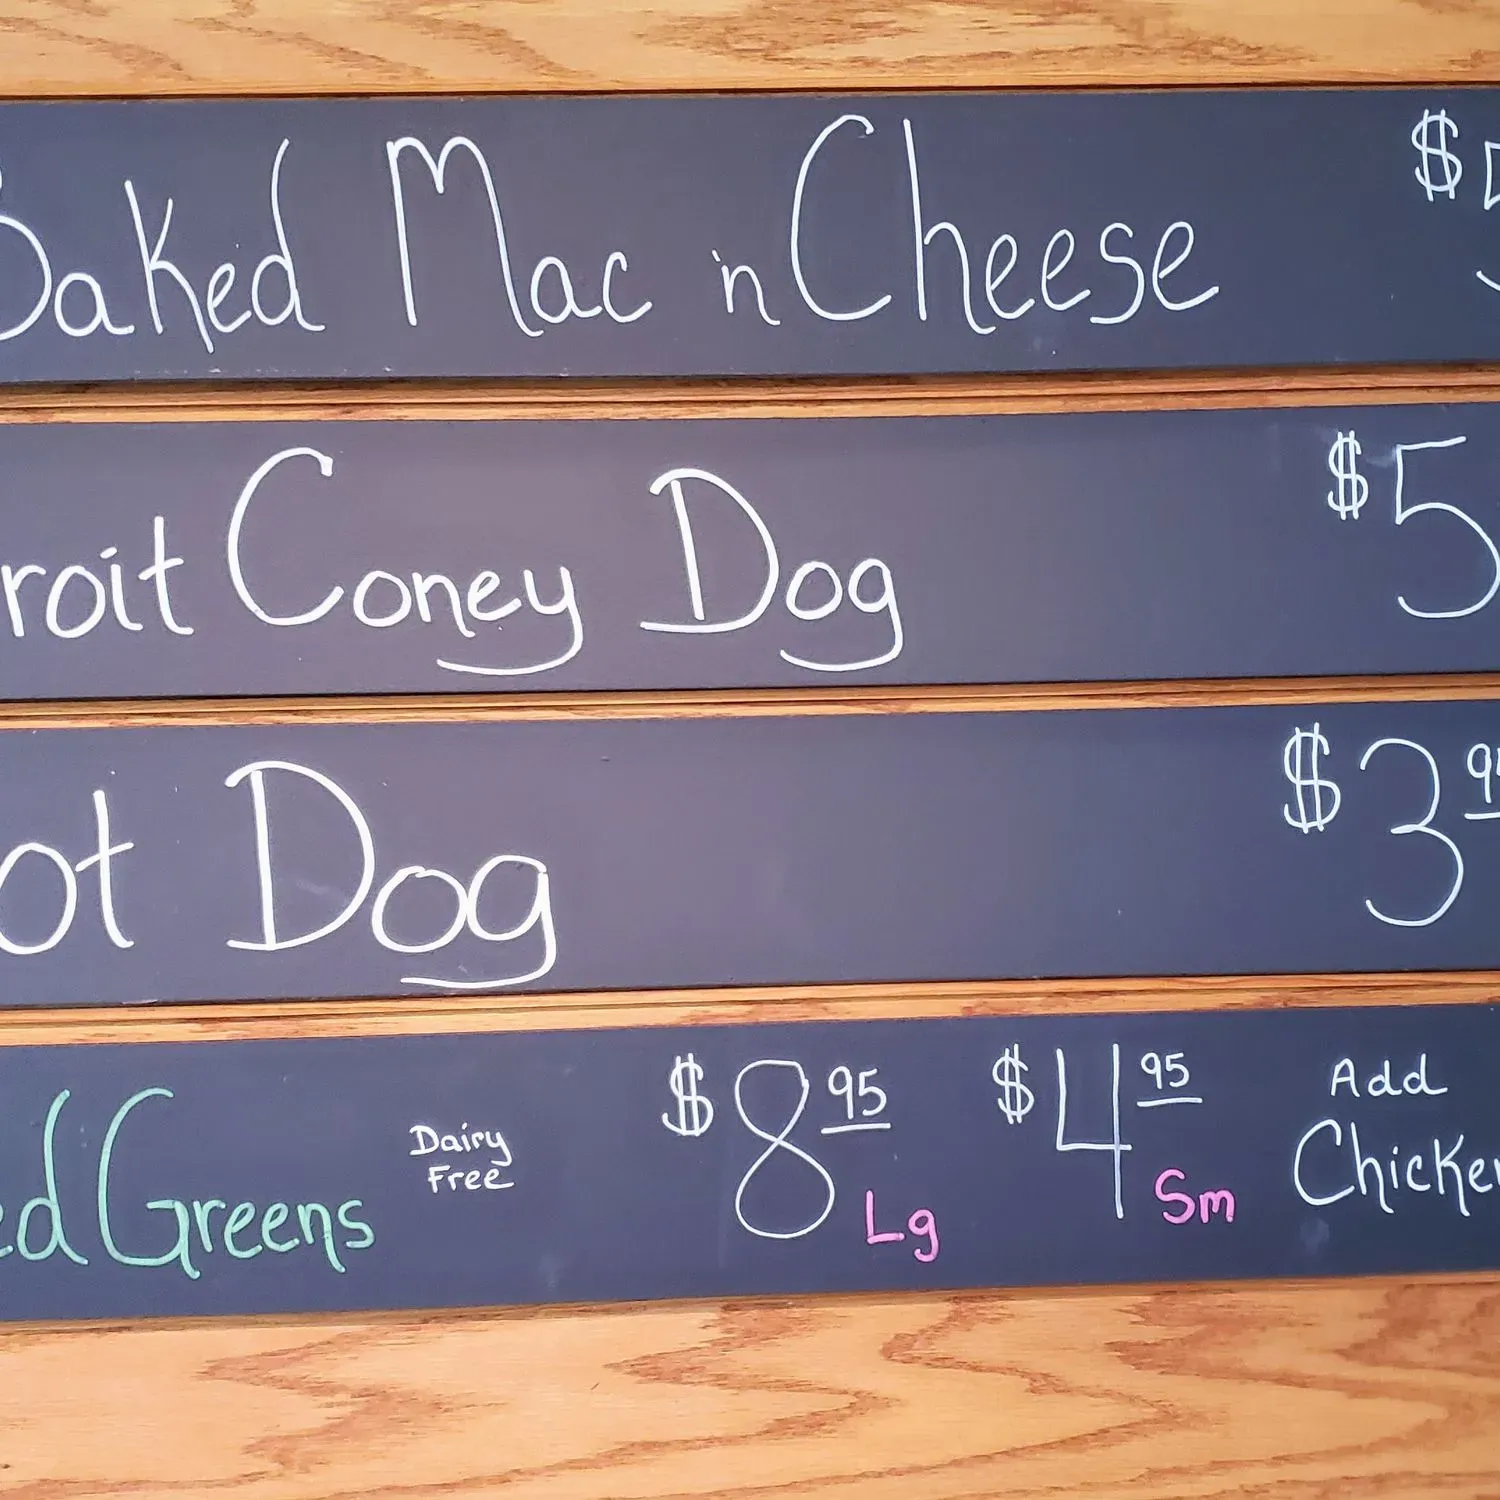 Baked Mac 'n Cheese $5
roit Coney Dog $5
ot Dog $3 95
ed Greens Dairy Free $8 95 Lg $4 95 Sm Add Chicken